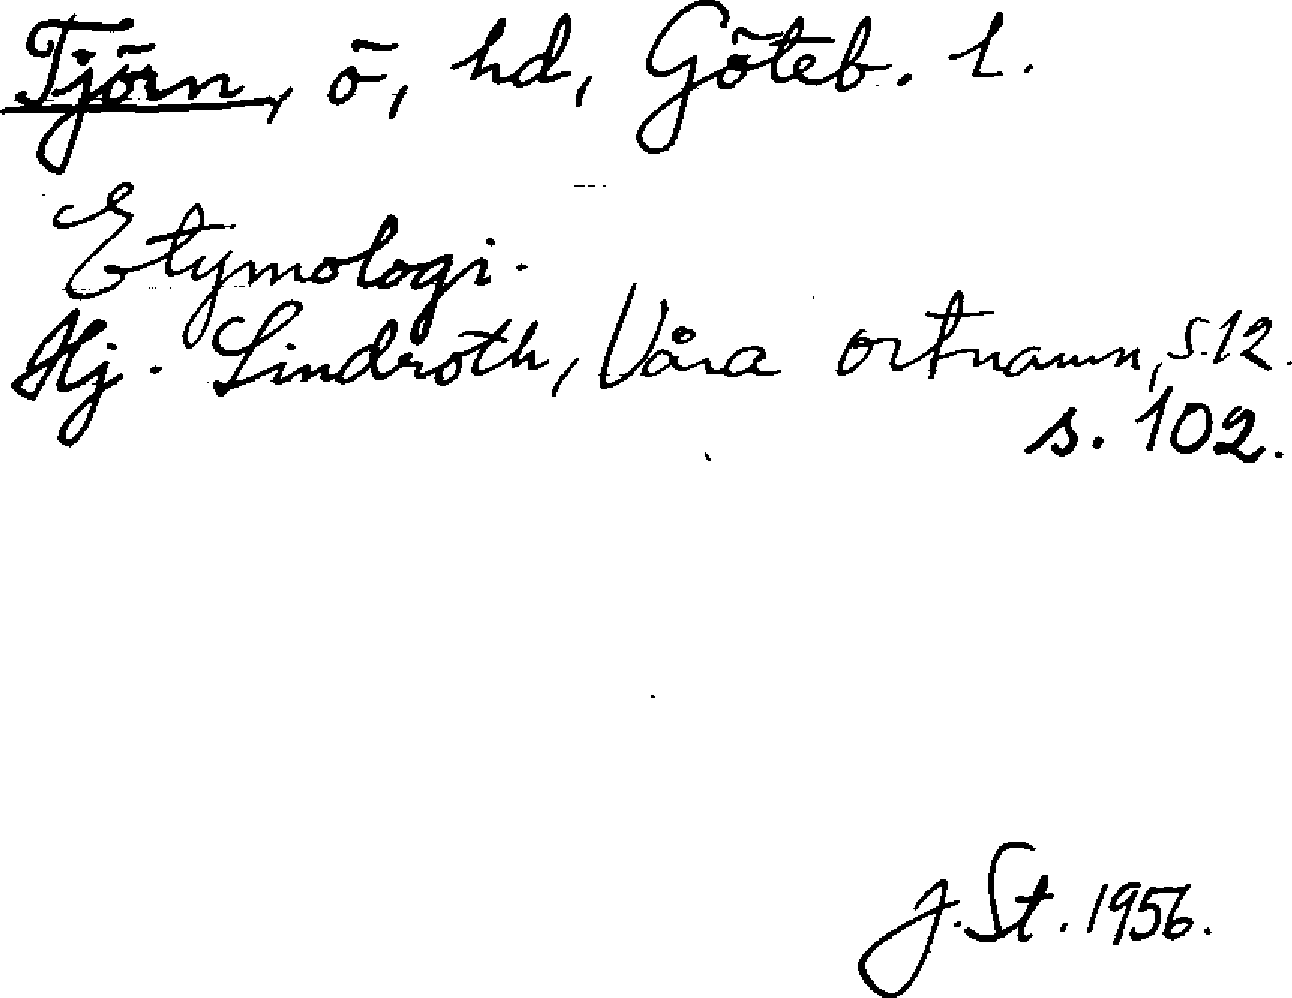 Tjörn, ö, hd, Göteb. l.
Etymologi.
Hj. Lindroth, Våra ortnamn, s.12.
s. 102.
J. St. 1956.